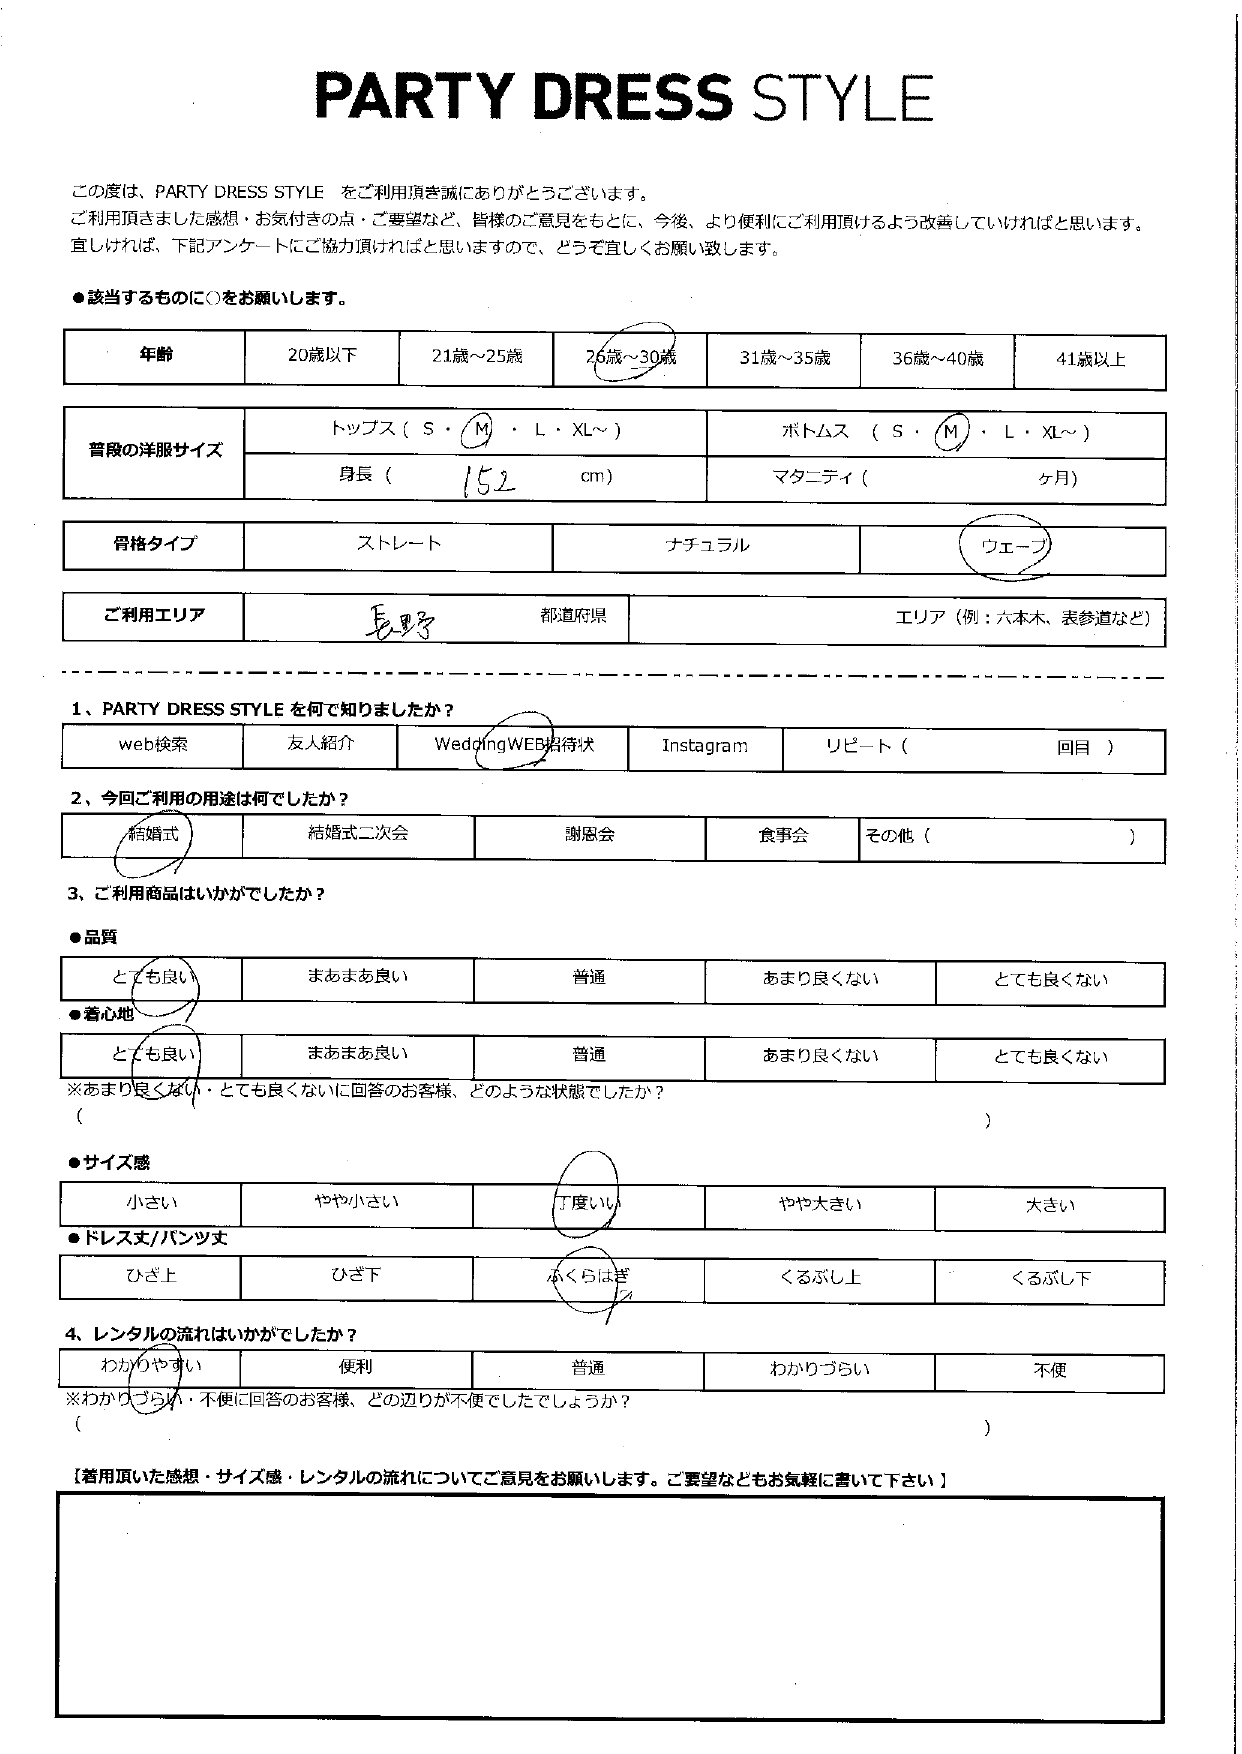 PARTY DRESS STYLE
この度は、PARTY DRESS STYLE をご利用頂き誠にありがとうございます。
ご利用頂きました感想・お気付きの点・ご要望など、皆様のご意見をもとに、今後、より便利にご利用頂けるよう改善していければと思います。
宜しければ、下記アンケートにご協力頂ければと思いますので、どうぞ宜しくお願い致します。
●該当するものに○をお願いします。
年齢 20歳以下 21歳～25歳 26歳～30歳 31歳～35歳 36歳～40歳 41歳以上
普段の洋服サイズ トップス ( S ・ M ・ L ・ XL～ ) ボトムス ( S ・ M ・ L ・ XL～ )
身長 ( 152 cm) マタニティ ( ヶ月)
骨格タイプ ストレート ナチュラル ウェーブ
ご利用エリア 長野 都道府県 エリア（例：六本木、表参道など）
1、PARTY DRESS STYLE を何で知りましたか？
web検索 友人紹介 WeddingWEB招待状 Instagram リピート ( 回目 )
2、今回ご利用の用途は何でしたか？
結婚式 結婚式二次会 謝恩会 食事会 その他 ( )
3、ご利用商品はいかがでしたか？
●品質
とても良い まあまあ良い 普通 あまり良くない とても良くない
●着心地
とても良い まあまあ良い 普通 あまり良くない とても良くない
※あまり良くない・とても良くないに回答のお客様、どのような状態でしたか？
( )
●サイズ感
小さい やや小さい 丁度いい やや大きい 大きい
●ドレス丈/パンツ丈
ひざ上 ひざ下 ふくらはぎ くるぶし上 くるぶし下
4、レンタルの流れはいかがでしたか？
わかりやすい 便利 普通 わかりづらい 不便
※わかりづらい・不便に回答のお客様、どの辺りが不便でしたでしょうか？
( )
【着用頂いた感想・サイズ感・レンタルの流れについてご意見をお願いします。ご要望などもお気軽に書いて下さい】